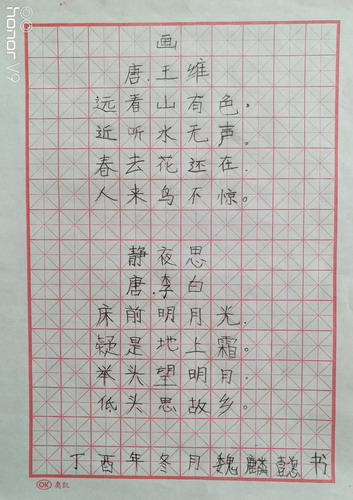 honor V9
画
唐.王维
远看山有色。
近听水无声。
春去花还在.
人来鸟不惊。
静夜思
唐.李白
床前明月光.
疑是地上霜。
举头望明月.
低头思故乡。
丁酉年冬月魏麟懿书
OK 奥凯